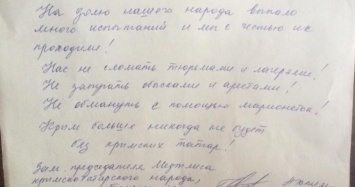 На долю нашего народа выпало
много испытаний и мы с честью их
проходим!
Нас не сломать тюрьмами и лагерями!
Не запугать обысками и арестами!
Не обмануть с помощью марионеток!
Крым больше никогда не будет
без крымских татар!
Зам. председателя Меджлиса
крымскотатарского народа,